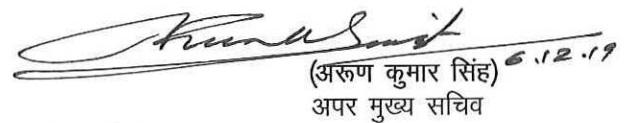 (अरूण कुमार सिंह) 6.12.19
अपर मुख्य सचिव